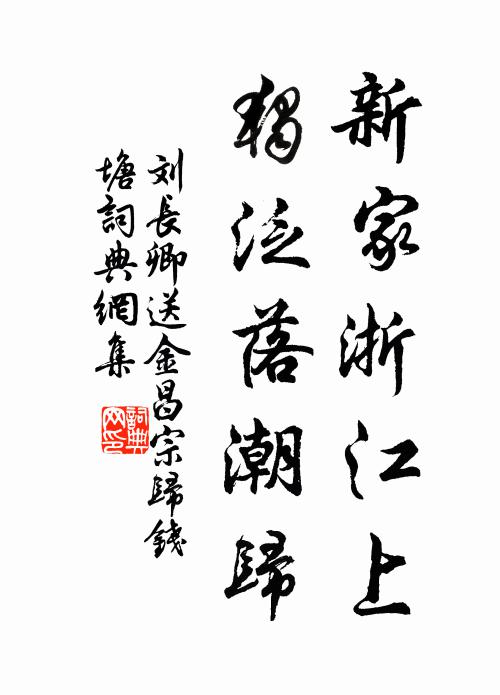 新家浙江上
獨泛落潮歸
刘長卿送金昌宗歸錢
塘詞典網集
詞典
网印